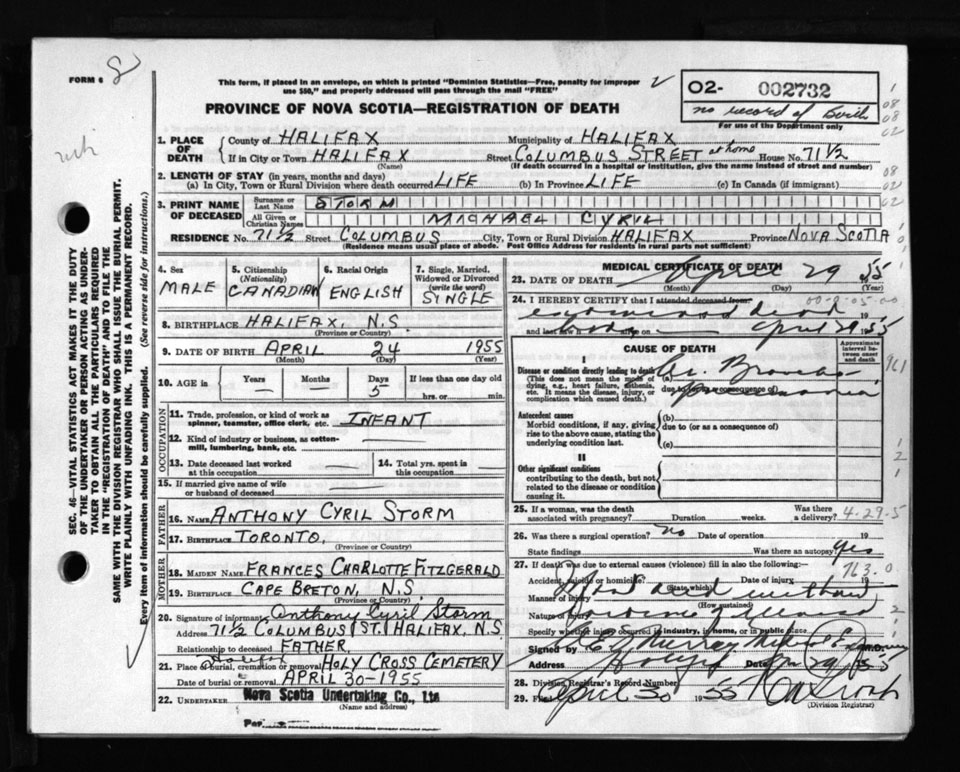 FORM 6 8
This form, if placed in an envelope, on which is printed "Dominion Statistics—Free, penalty for improper
use $50," and properly addressed will pass through the mail "FREE"
PROVINCE OF NOVA SCOTIA—REGISTRATION OF DEATH
O2- 002732
no record of Birth
For use of the Department only
SEC. 46—VITAL STATISTICS ACT MAKES IT THE DUTY
OF THE UNDERTAKER OR PERSON ACTING AS UNDER-
TAKER TO OBTAIN ALL THE PARTICULARS REQUIRED
IN THE "REGISTRATION OF DEATH" AND TO FILE THE
SAME WITH THE DIVISION REGISTRAR WHO SHALL ISSUE THE BURIAL PERMIT.
WRITE PLAINLY WITH UNFADING INK. THIS IS A PERMANENT RECORD.
Every item of information should be carefully supplied. (See reverse side for instructions.)
1. PLACE OF DEATH
County of HALIFAX Municipality of HALIFAX
If in City or Town HALIFAX Street COLUMBUS STREET at home House No. 71½
(Name) (If death occurred in a hospital or institution, give the name instead of street and number)
2. LENGTH OF STAY (in years, months and days)
(a) In City, Town or Rural Division where death occurred LIFE (b) In Province LIFE (c) In Canada (if immigrant)
3. PRINT NAME OF DECEASED
Surname or Last Name STORM
All Given or Christian Names MICHAEL CYRIL
RESIDENCE No. 71½ Street COLUMBUS City, Town or Rural Division HALIFAX Province NOVA SCOTIA
(Residence means usual place of abode. Post Office Address for residents in rural parts not sufficient)
4. Sex MALE
5. Citizenship (Nationality) CANADIAN
6. Racial Origin ENGLISH
7. Single, Married, Widowed or Divorced (write the word) SINGLE
8. BIRTHPLACE HALIFAX, N.S.
(Province or Country)
9. DATE OF BIRTH APRIL 24 1955
(Month) (Day) (Year)
10. AGE in Years — Months — Days 5 If less than one day old
hrs. or min.
OCCUPATION
11. Trade, profession, or kind of work as
spinner, teamster, office clerk, etc. INFANT
12. Kind of industry or business, as cotton-
mill, lumbering, bank, etc.
13. Date deceased last worked
at this occupation
14. Total yrs. spent in
this occupation
15. If married give name of wife
or husband of deceased
FATHER
16. NAME ANTHONY CYRIL STORM
17. BIRTHPLACE TORONTO,
(Province or Country)
MOTHER
18. MAIDEN NAME FRANCES CHARLOTTE FITZGERALD
19. BIRTHPLACE CAPE BRETON, N.S.
(Province or Country)
20. Signature of informant Anthony Cyril Storm
Address 71½ COLUMBUS ST. HALIFAX, N.S.
Relationship to deceased FATHER,
21. Place of burial, cremation or removal Halifax HOLY CROSS CEMETERY
Date of burial or removal APRIL 30-1955
22. UNDERTAKER Nova Scotia Undertaking Co., Ltd
(Name and address)
MEDICAL CERTIFICATE OF DEATH
23. DATE OF DEATH April 29 55
(Month) (Day) (Year)
24. I HEREBY CERTIFY that I attended deceased from
April 29 1955
and last
CAUSE OF DEATH
Approximate interval between onset and death
I
Disease or condition directly leading to death
(This does not mean the mode of dying, e.g., heart failure, asthenia, etc. It means the disease, injury, or complication which caused death.)
(a) Broncho
due to (or as a consequence of) pneumonia
Antecedent causes
Morbid conditions, if any, giving rise to the above cause, stating the underlying condition last.
(b)
due to (or as a consequence of)
(c)
II
Other significant conditions
contributing to the death, but not related to the disease or condition causing it.
25. If a woman, was the death
associated with pregnancy? Duration weeks. Was there a delivery? 4-29-5
26. Was there a surgical operation? no Date of operation 19
State findings Was there an autopsy? yes
763.0
27. If death was due to external causes (violence) fill in also the following:
Accident, suicide or homicide? Date of injury 19
(State which)
Manner of injury
(How sustained)
Nature of injury
Specify whether injury occurred in industry, in home, or in public place
Signed by M.D.
Address Date 29 1955
28. Division Registrar's Record Number
29. Filed April 30 1955
(Division Registrar)